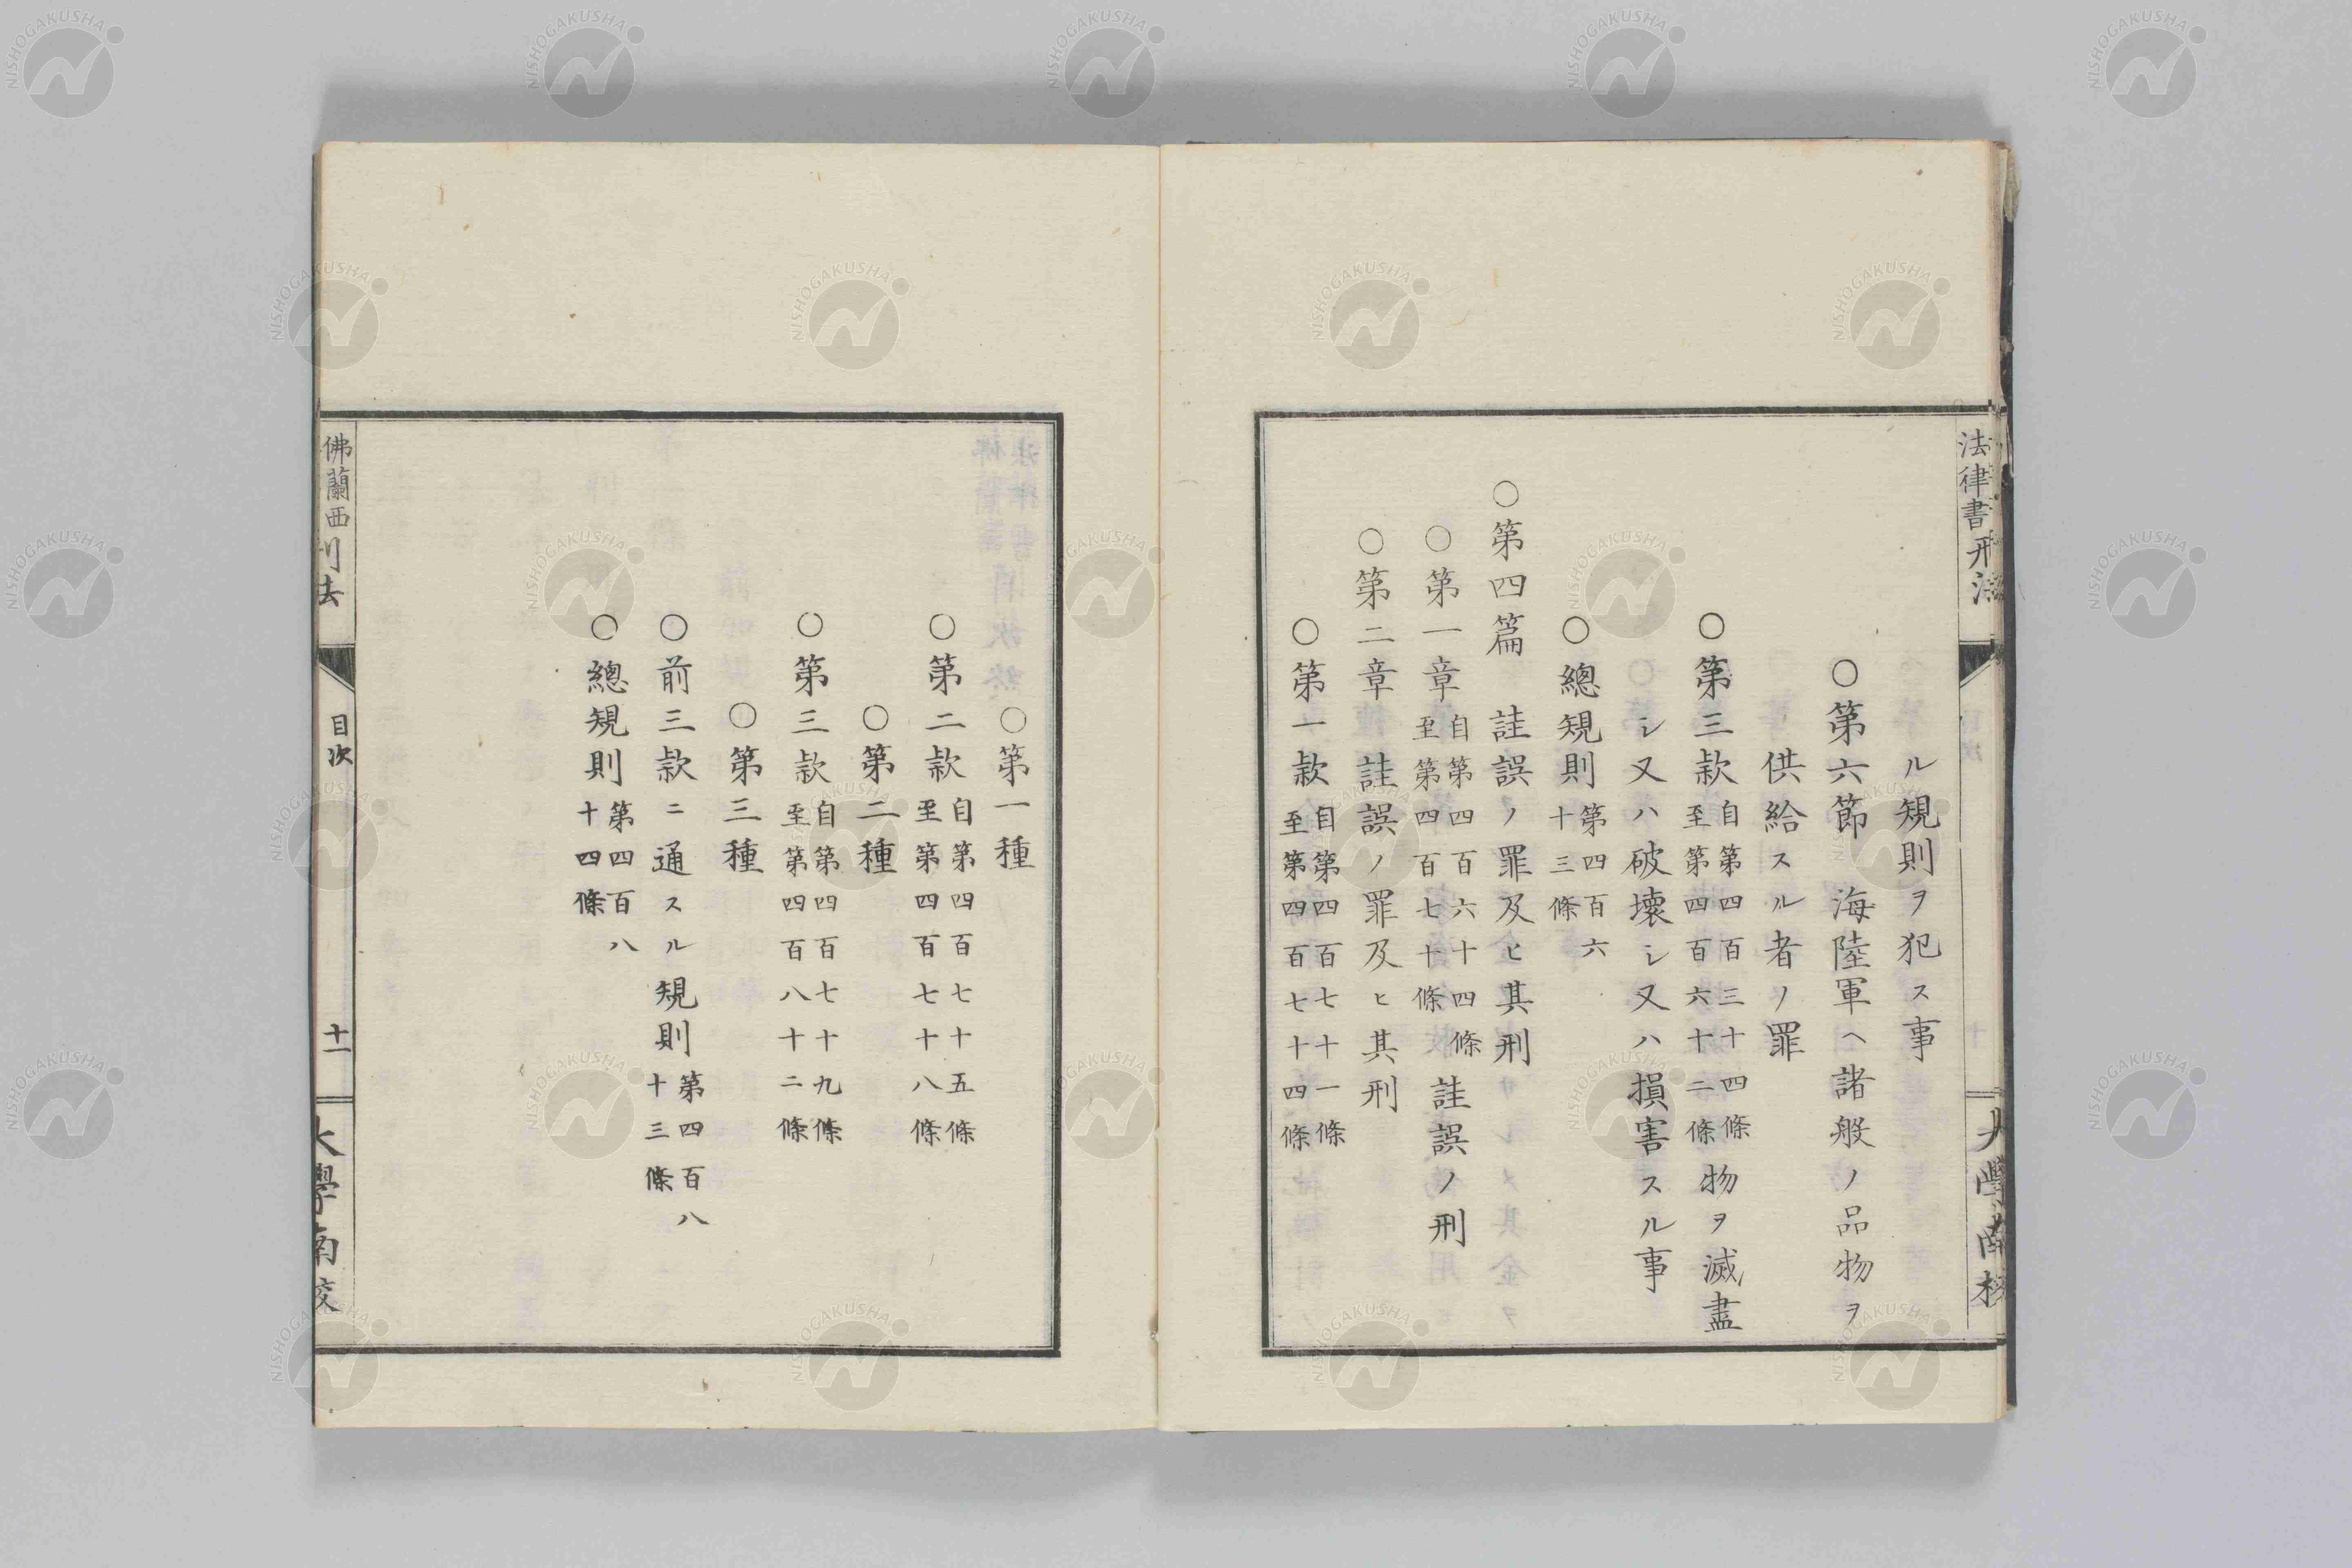 法律書刑法
ル規則ヲ犯ス事
○第六節 海陸軍ヘ諸般ノ品物ヲ
供給スル者ノ罪
○第三款 自第四百三十四條 至第四百六十二條 物ヲ滅盡
シ又ハ破壊シ又ハ損害スル事
○總規則 第四百六十三條
○第四篇 註誤ノ罪及ヒ其刑
○第一章 自第四百六十四條 至第四百七十條 註誤ノ刑
○第二章 註誤ノ罪及ヒ其刑
○第一款 自第四百七十一條 至第四百七十四條
○第一種
○第二款 自第四百七十五條 至第四百七十八條
○第二種
○第三款 自第四百七十九條 至第四百八十二條
○第三種
○前三款ニ通スル規則 第四百八十三條
○總規則 第四百八十四條
佛蘭西刑法
目次
十一
大學南校
NISHOGAKUSHA